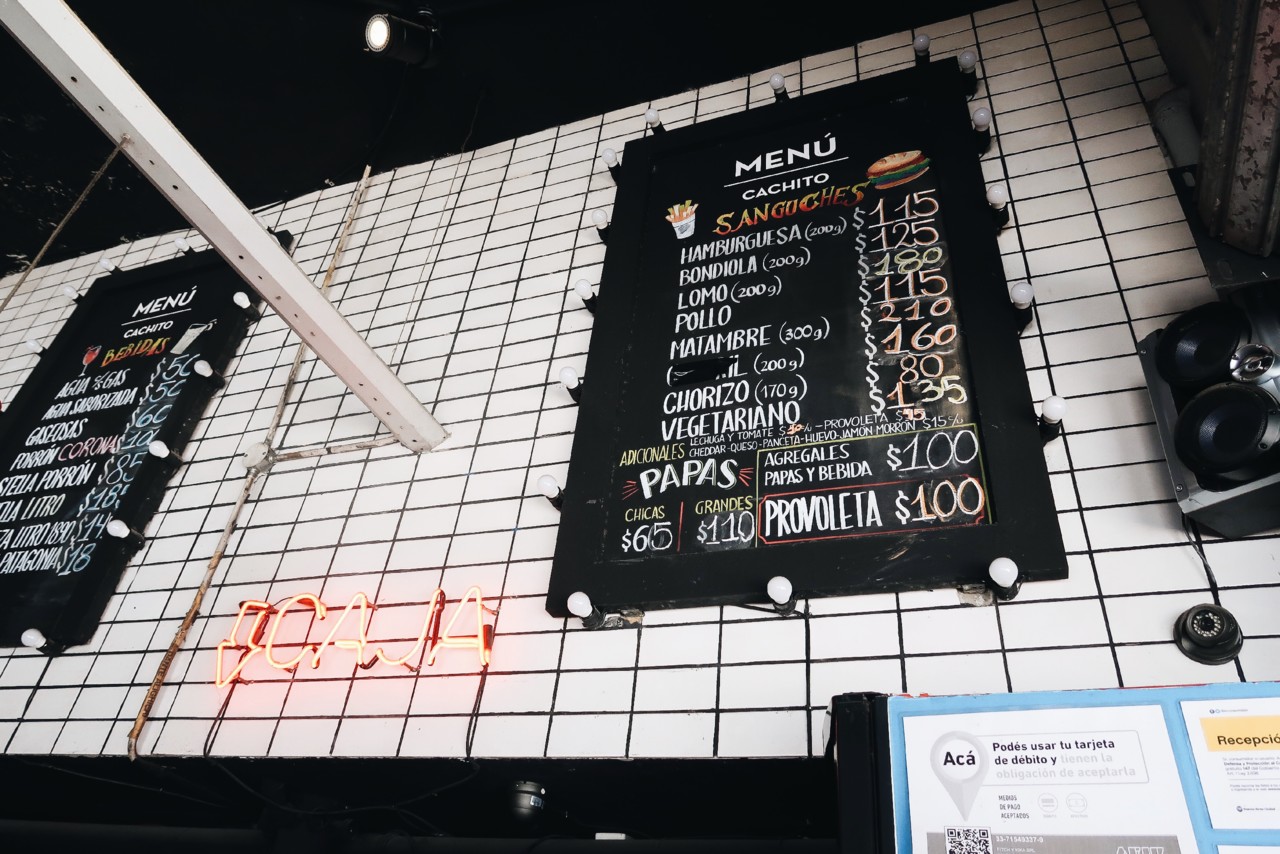 MENÚ
CACHITO
BEBIDAS
AGUA GAS $50
AGUA SABORIZADA $50
GASEOSAS $60
PORRÓN CORONA
STELLA PORRÓN $85
LITRO
LITRO 1890
PATAGONIA
MENÚ
CACHITO
SANGUCHES
HAMBURGUESA (200g) $115
BONDIOLA (200g) $125
LOMO (200g) $180
POLLO $115
MATAMBRE (300g) $210
(200g) $160
CHORIZO (170g) $80
VEGETARIANO $135
ADICIONALES
LECHUGA Y TOMATE - PROVOLETA
CHEDDAR-QUESO-PANCETA-HUEVO-JAMÓN-MORRÓN $15
PAPAS
CHICAS $65
GRANDES $110
AGREGALES
PAPAS Y BEBIDA $100
PROVOLETA $100
CAJA
Acá
Podés usar tu tarjeta
de débito y tienen la
obligación de aceptarla
MEDIOS
DE PAGO
ACEPTADOS
33-71549337-9
Recepció